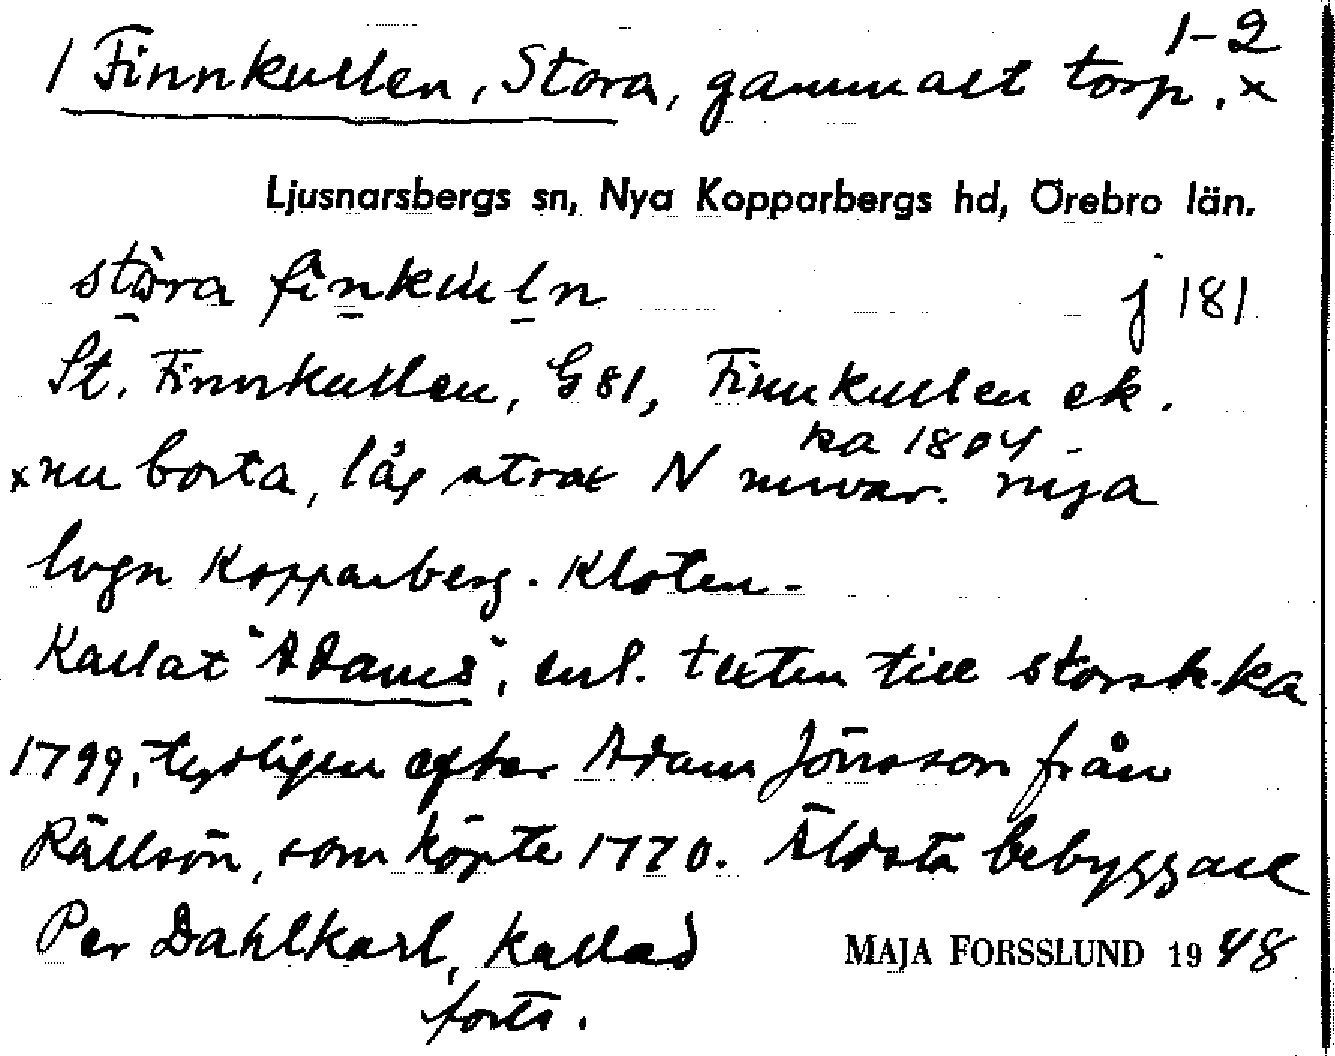 1-2
1 Finnkullen, Stora, gammalt torp. x
Ljusnarsbergs sn, Nya Kopparbergs hd, Örebro län.
stòra finkuln j 181
St. Finnkullen, G 81, Finnkullen ek.
ka 1804 -
x nu borta, låg strax N nuvar. nya
lvgn Kopparberg - Kloten -
Kallat "Adams", enl. texten till storsk.ka
1799, tydligen efter Adam Jönsson från
Rällsön, som köpte 1770. Äldsta bebyggare
Per Dahlkarl, kallad
MAJA FORSSLUND 1948
forts.